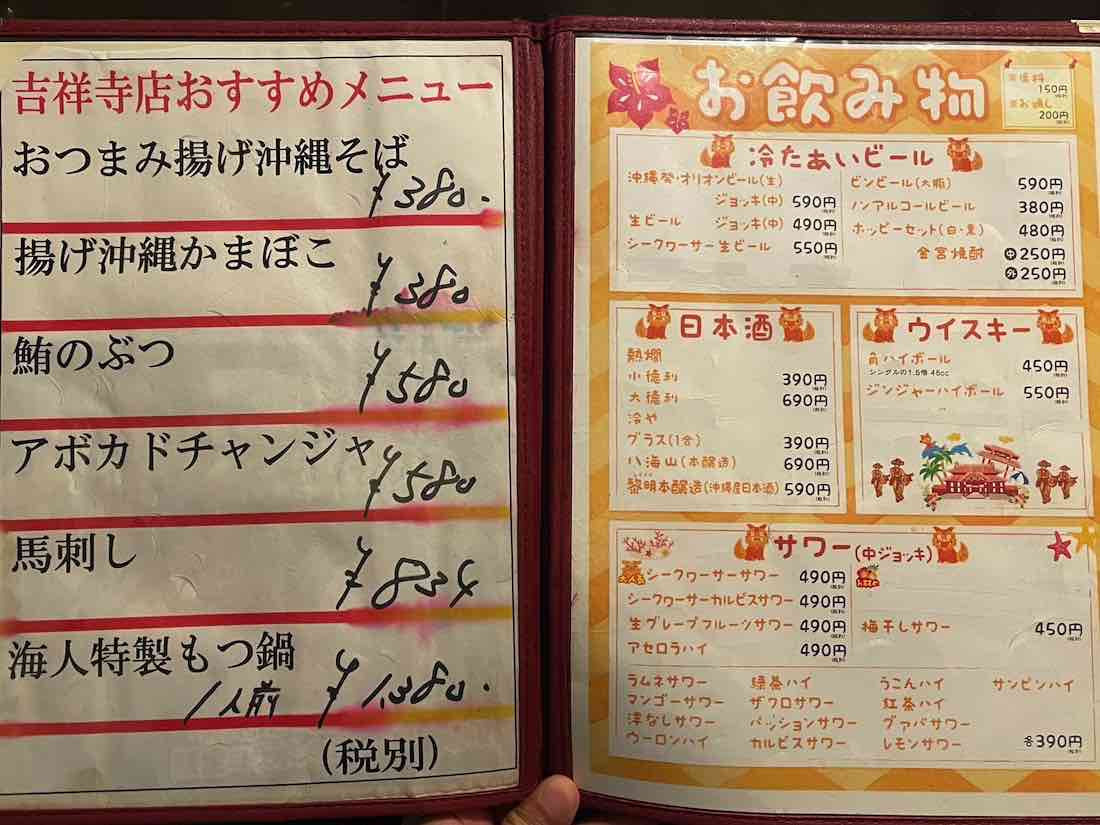 吉祥寺店おすすめメニュー
おつまみ揚げ沖縄そば
¥380.
揚げ沖縄かまぼこ
¥380
鮪のぶつ
¥580
アボカドチャンジャ
¥580
馬刺し
¥834
海人特製もつ鍋
1人前 ¥1,380.
(税別)
お飲み物
150円
(税別)
※お通し
200円
(税別)
冷たぁいビール
沖縄発・オリオンビール(生)
ジョッキ(中) 590円
(税別)
生ビール ジョッキ(中) 490円
(税別)
シークヮーサー生ビール 550円
(税別)
ビンビール(大瓶) 590円
(税別)
ノンアルコールビール 380円
(税別)
ホッピーセット(白・黒) 480円
(税別)
金宮焼酎 中250円
(税別)
外250円
(税別)
日本酒
熱燗
小徳利 390円
(税別)
大徳利 690円
(税別)
冷や
グラス(1合) 390円
(税別)
八海山(本醸造) 690円
(税別)
黎明本醸造(沖縄産日本酒) 590円
(税別)
ウイスキー
角ハイボール 450円
(税別)
シングルの1.5倍 45cc
ジンジャーハイボール 550円
(税別)
サワー(中ジョッキ)
大人気 シークヮーサーサワー 490円
(税別)
シークヮーサーカルピスサワー 490円
(税別)
生グレープフルーツサワー 490円
(税別)
アセロラハイ 490円
(税別)
梅干しサワー 450円
(税別)
ラムネサワー 緑茶ハイ うこんハイ サンピンハイ
マンゴーサワー ザクロサワー 紅茶ハイ
洋なしサワー パッションサワー グァバサワー
ウーロンハイ カルピスサワー レモンサワー 各390円
(税別)